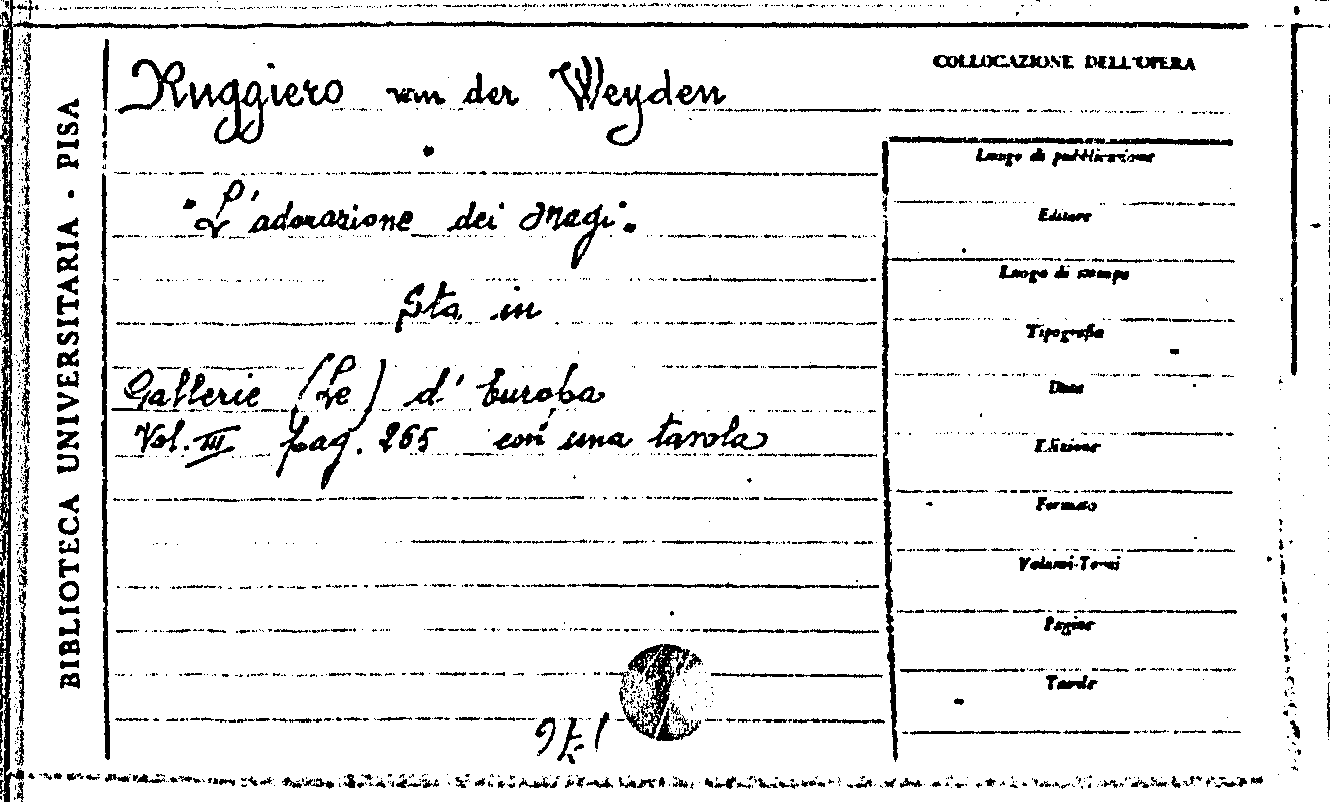 BIBLIOTECA UNIVERSITARIA - PISA
Ruggiero van der Weyden
"L'adorazione dei Magi".
Sta in
Gallerie (Le) d'Europa
Vol. III pag. 265 con una tavola
COLLOCAZIONE DELL'OPERA
Luogo di pubblicazione
Editore
Luogo di stampa
Tipografia
Data
Edizione
Formato
Volumi-Tomi
Pagine
Tavole